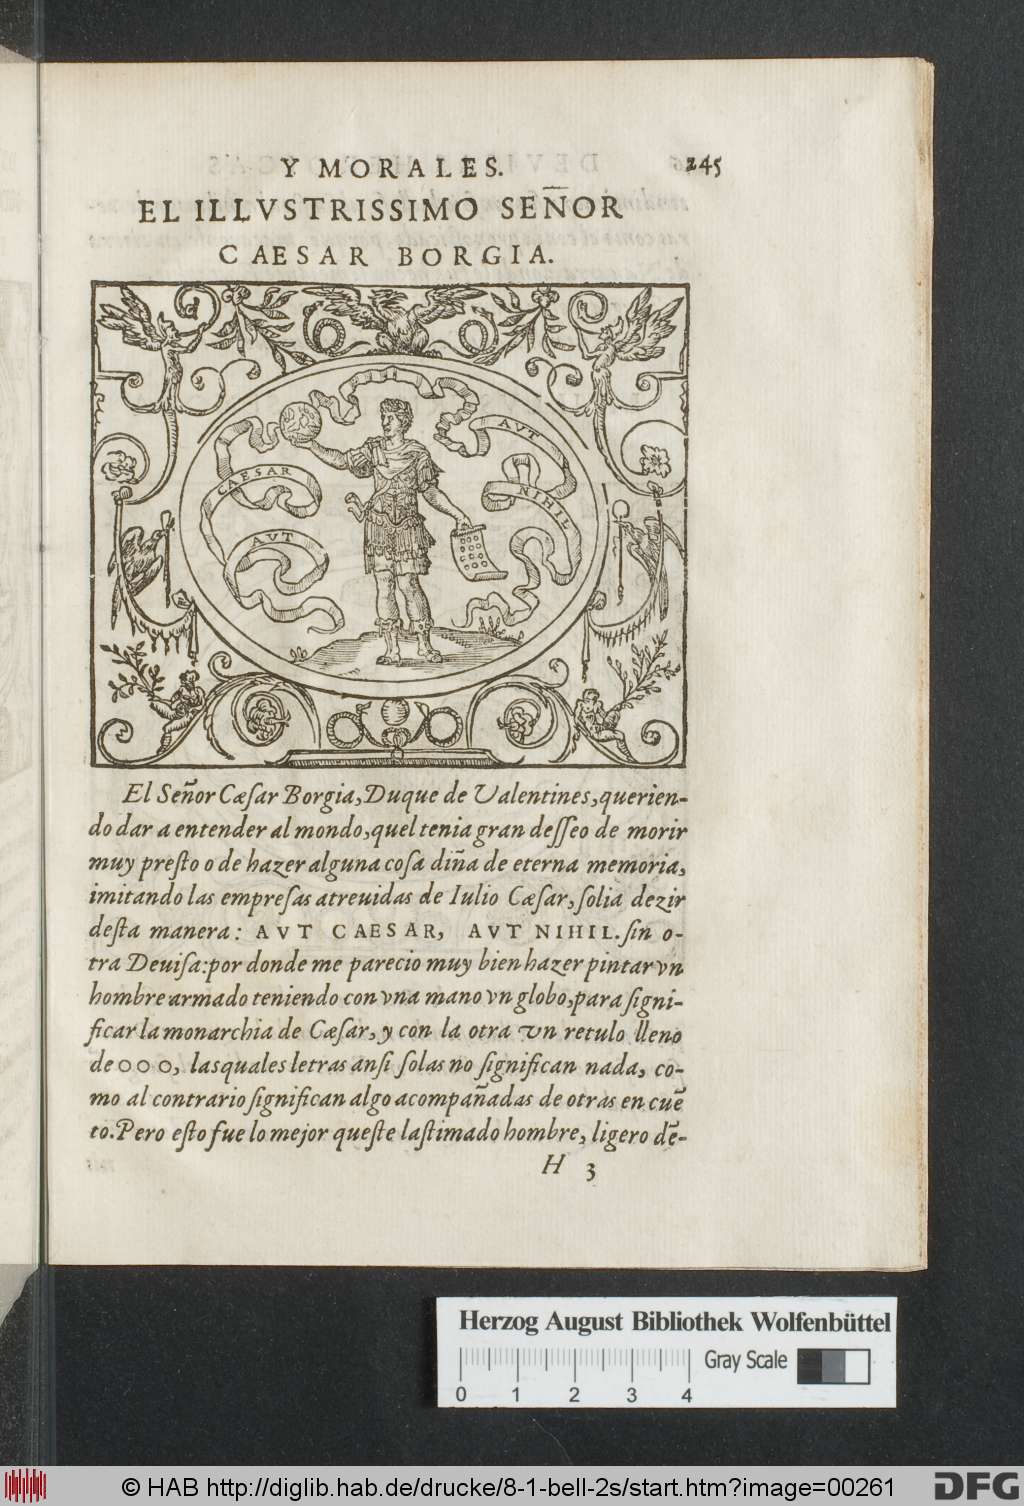 Y MORALES. 245
EL ILLVSTRISSIMO SEÑOR
CAESAR BORGIA.
CAESAR
AVT
AVT
NIHIL
El Señor Cæſar Borgia, Duque de Valentines, querien-
do dar a entender al mondo, quel tenia gran deſſeo de morir
muy preſto o de hazer alguna coſa diña de eterna memoria,
imitando las empreſas atreuidas de Iulio Cæſar, ſolia dezir
deſta manera: AVT CAESAR, AVT NIHIL. ſin o-
tra Deuiſa: por donde me parecio muy bien hazer pintar vn
hombre armado teniendo con vna mano vn globo, para ſigni-
ficar la monarchia de Cæſar, y con la otra vn retulo lleno
de ooo, lasquales letras anſi ſolas no ſignifican nada, co-
mo al contrario ſignifican algo acompañadas de otras en cuē
to. Pero eſto fue lo mejor queſte laſtimado hombre, ligero dē-
H 3
Herzog August Bibliothek Wolfenbüttel
Gray Scale
0 1 2 3 4
© HAB http://diglib.hab.de/drucke/8-1-bell-2s/start.htm?image=00261
DFG